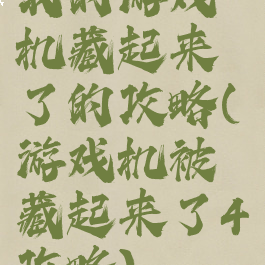 我的游戏
机藏起来
了的攻略(
游戏机被
藏起来了4
攻略)